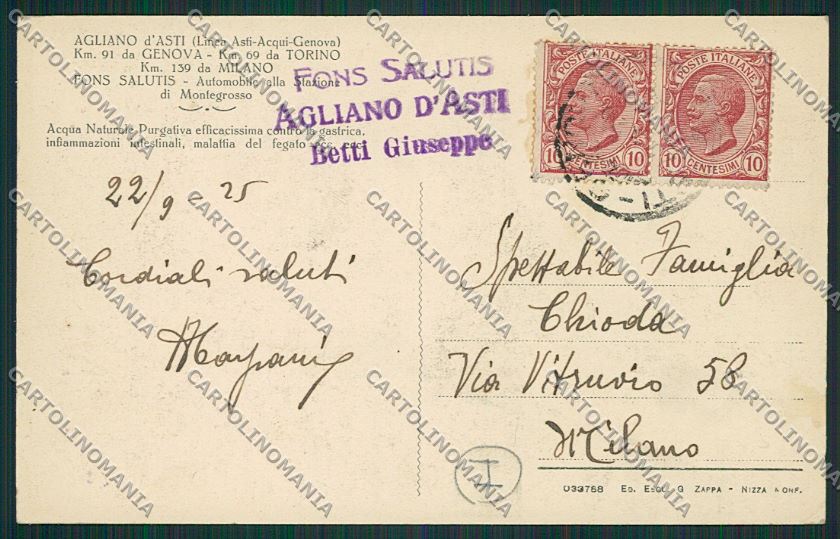 AGLIANO d'ASTI (Linea Asti-Acqui-Genova)
Km. 91 da GENOVA - Km 69 da TORINO
Km. 139 da MILANO
FONS SALUTIS - Automobile alla Stazione
di Montegrosso
Acqua Naturale Purgativa efficacissima contro la gastrica,
infiammazioni intestinali, malattia del fegato ecc. ecc.
FONS SALUTIS
AGLIANO D'ASTI
Betti Giuseppe
POSTE ITALIANE
10 CENTESIMI 10
POSTE ITALIANE
10 CENTESIMI 10
22/9 - 25
Cordiali saluti
Spettabile Famiglia
Chioda
Via Vitruvio 58
Milano
I
033768 Ed. Escl. G. Zappa - Nizza Monf.
CARTOLINOMANIA